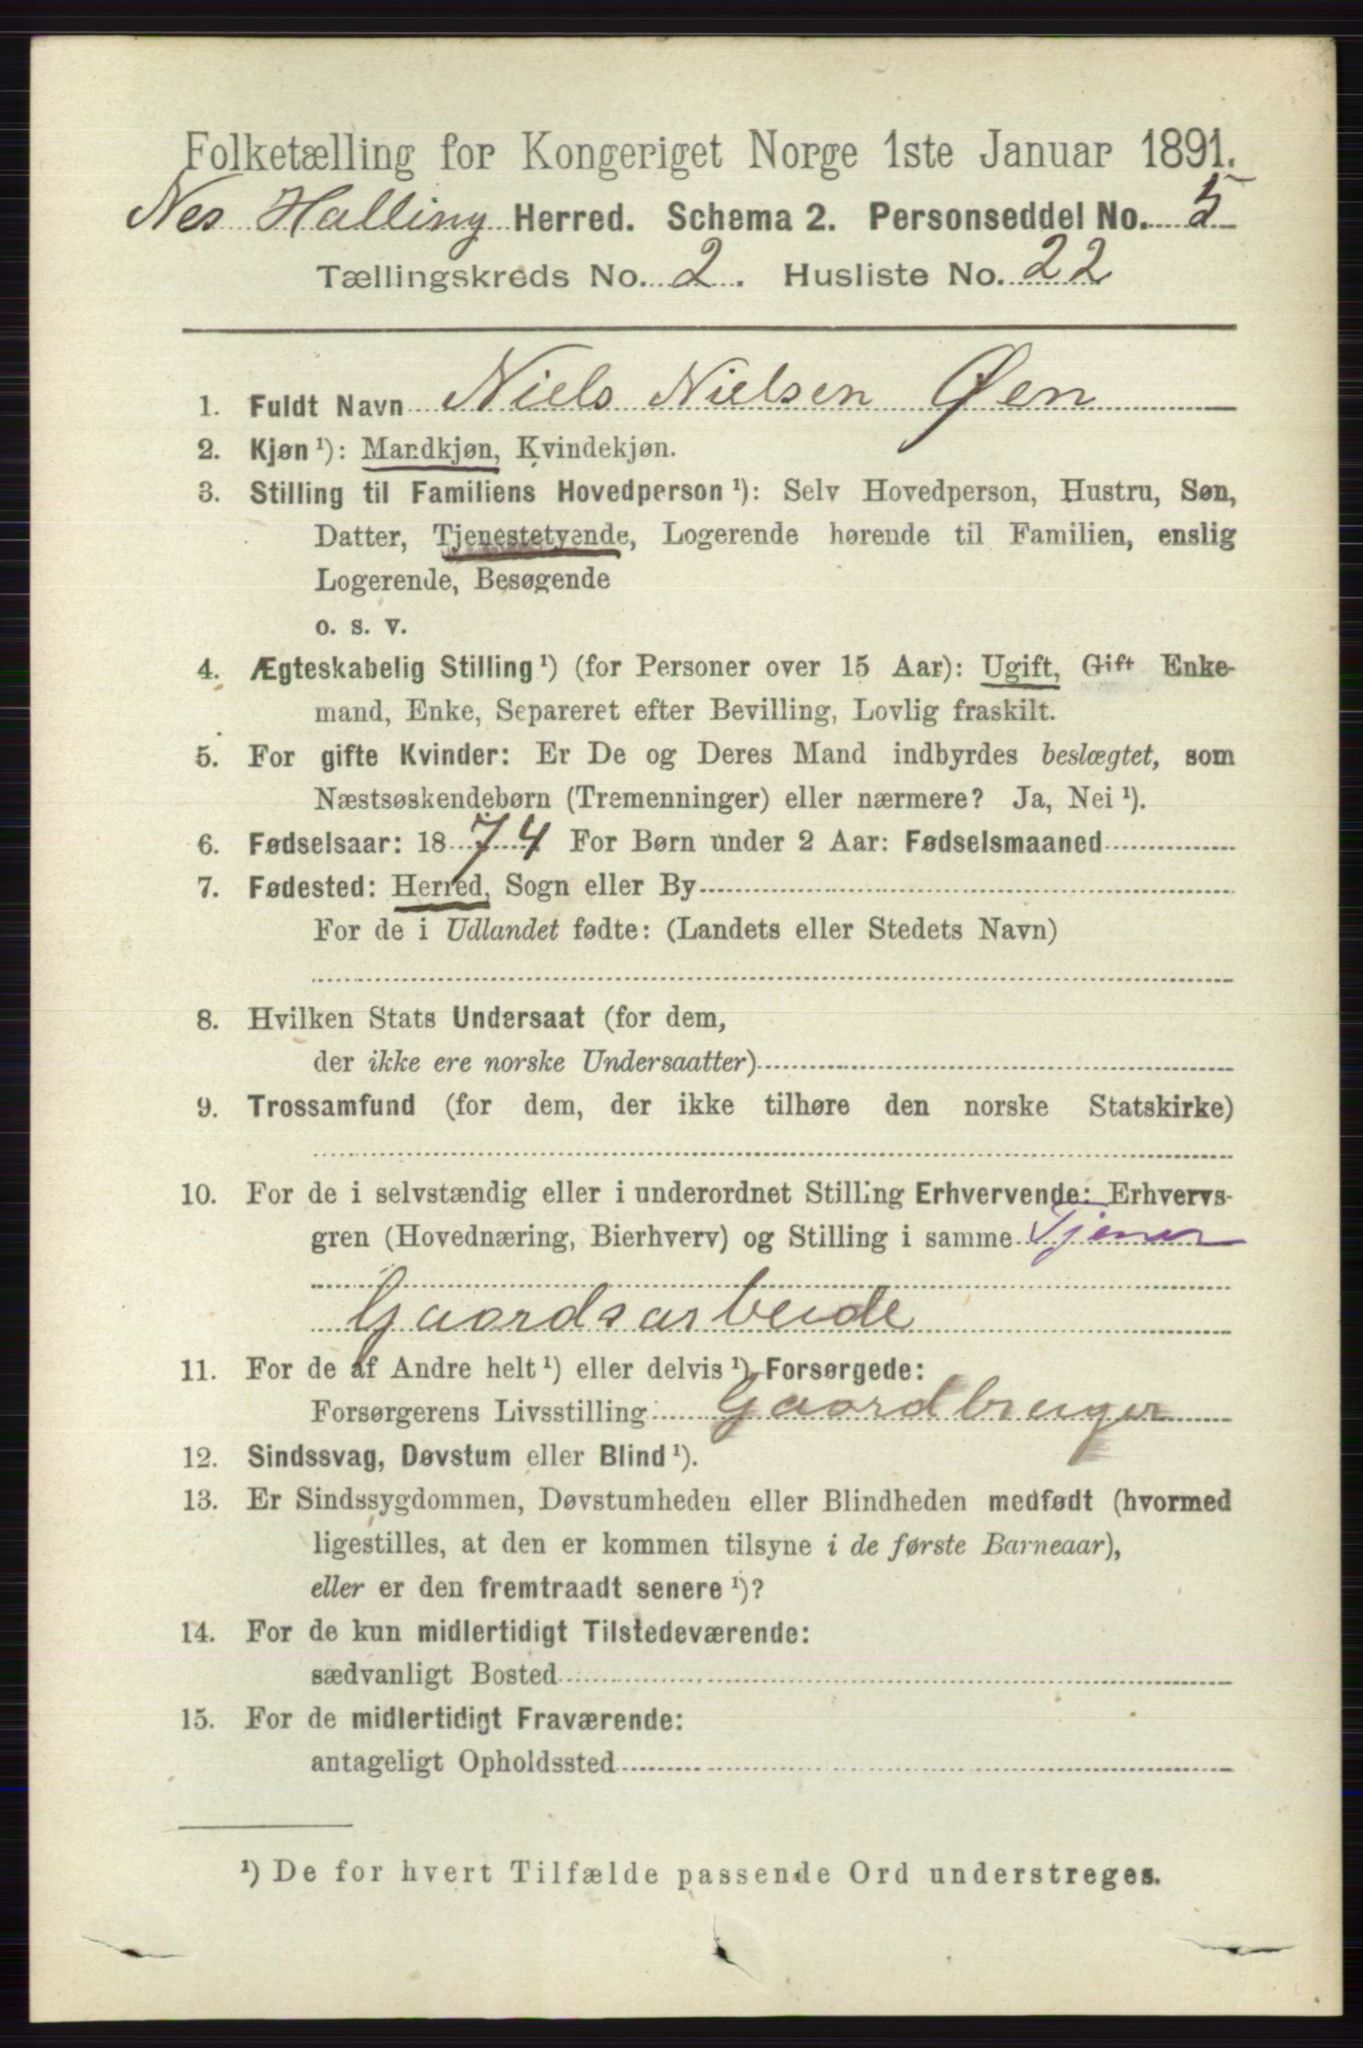 Folketælling for Kongeriget Norge 1ste Januar 1891.
Nes Halling Herred. Schema 2. Personseddel No. 5
Tællingskreds No. 2. Husliste No. 22
1. Fuldt Navn Niels Nielsen Øen
2. Kjøn ¹): Mandkjøn, Kvindekjøn.
3. Stilling til Familiens Hovedperson ¹): Selv Hovedperson, Hustru, Søn,
Datter, Tjenestetyende, Logerende hørende til Familien, enslig
Logerende, Besøgende
o. s. v.
4. Ægteskabelig Stilling ¹) (for Personer over 15 Aar): Ugift, Gift Enke-
mand, Enke, Separeret efter Bevilling, Lovlig fraskilt.
5. For gifte Kvinder: Er De og Deres Mand indbyrdes beslægtet, som
Næstsøskendebørn (Tremenninger) eller nærmere? Ja, Nei ¹).
6. Fødselsaar: 1874 For Børn under 2 Aar: Fødselsmaaned
7. Fødested: Herred, Sogn eller By
For de i Udlandet fødte: (Landets eller Stedets Navn)
8. Hvilken Stats Undersaat (for dem,
der ikke ere norske Undersaatter)
9. Trossamfund (for dem, der ikke tilhøre den norske Statskirke)
10. For de i selvstændig eller i underordnet Stilling Erhvervende: Erhvervs-
gren (Hovednæring, Bierhverv) og Stilling i samme Tjener
Gaardsarbeide
11. For de af Andre helt ¹) eller delvis ¹) Forsørgede:
Forsørgerens Livsstilling Gaardbruger
12. Sindssvag, Døvstum eller Blind ¹).
13. Er Sindssygdommen, Døvstumheden eller Blindheden medfødt (hvormed
ligestilles, at den er kommen tilsyne i de første Barneaar),
eller er den fremtraadt senere ¹)?
14. For de kun midlertidigt Tilstedeværende:
sædvanligt Bosted
15. For de midlertidigt Fraværende:
antageligt Opholdssted
¹) De for hvert Tilfælde passende Ord understreges.